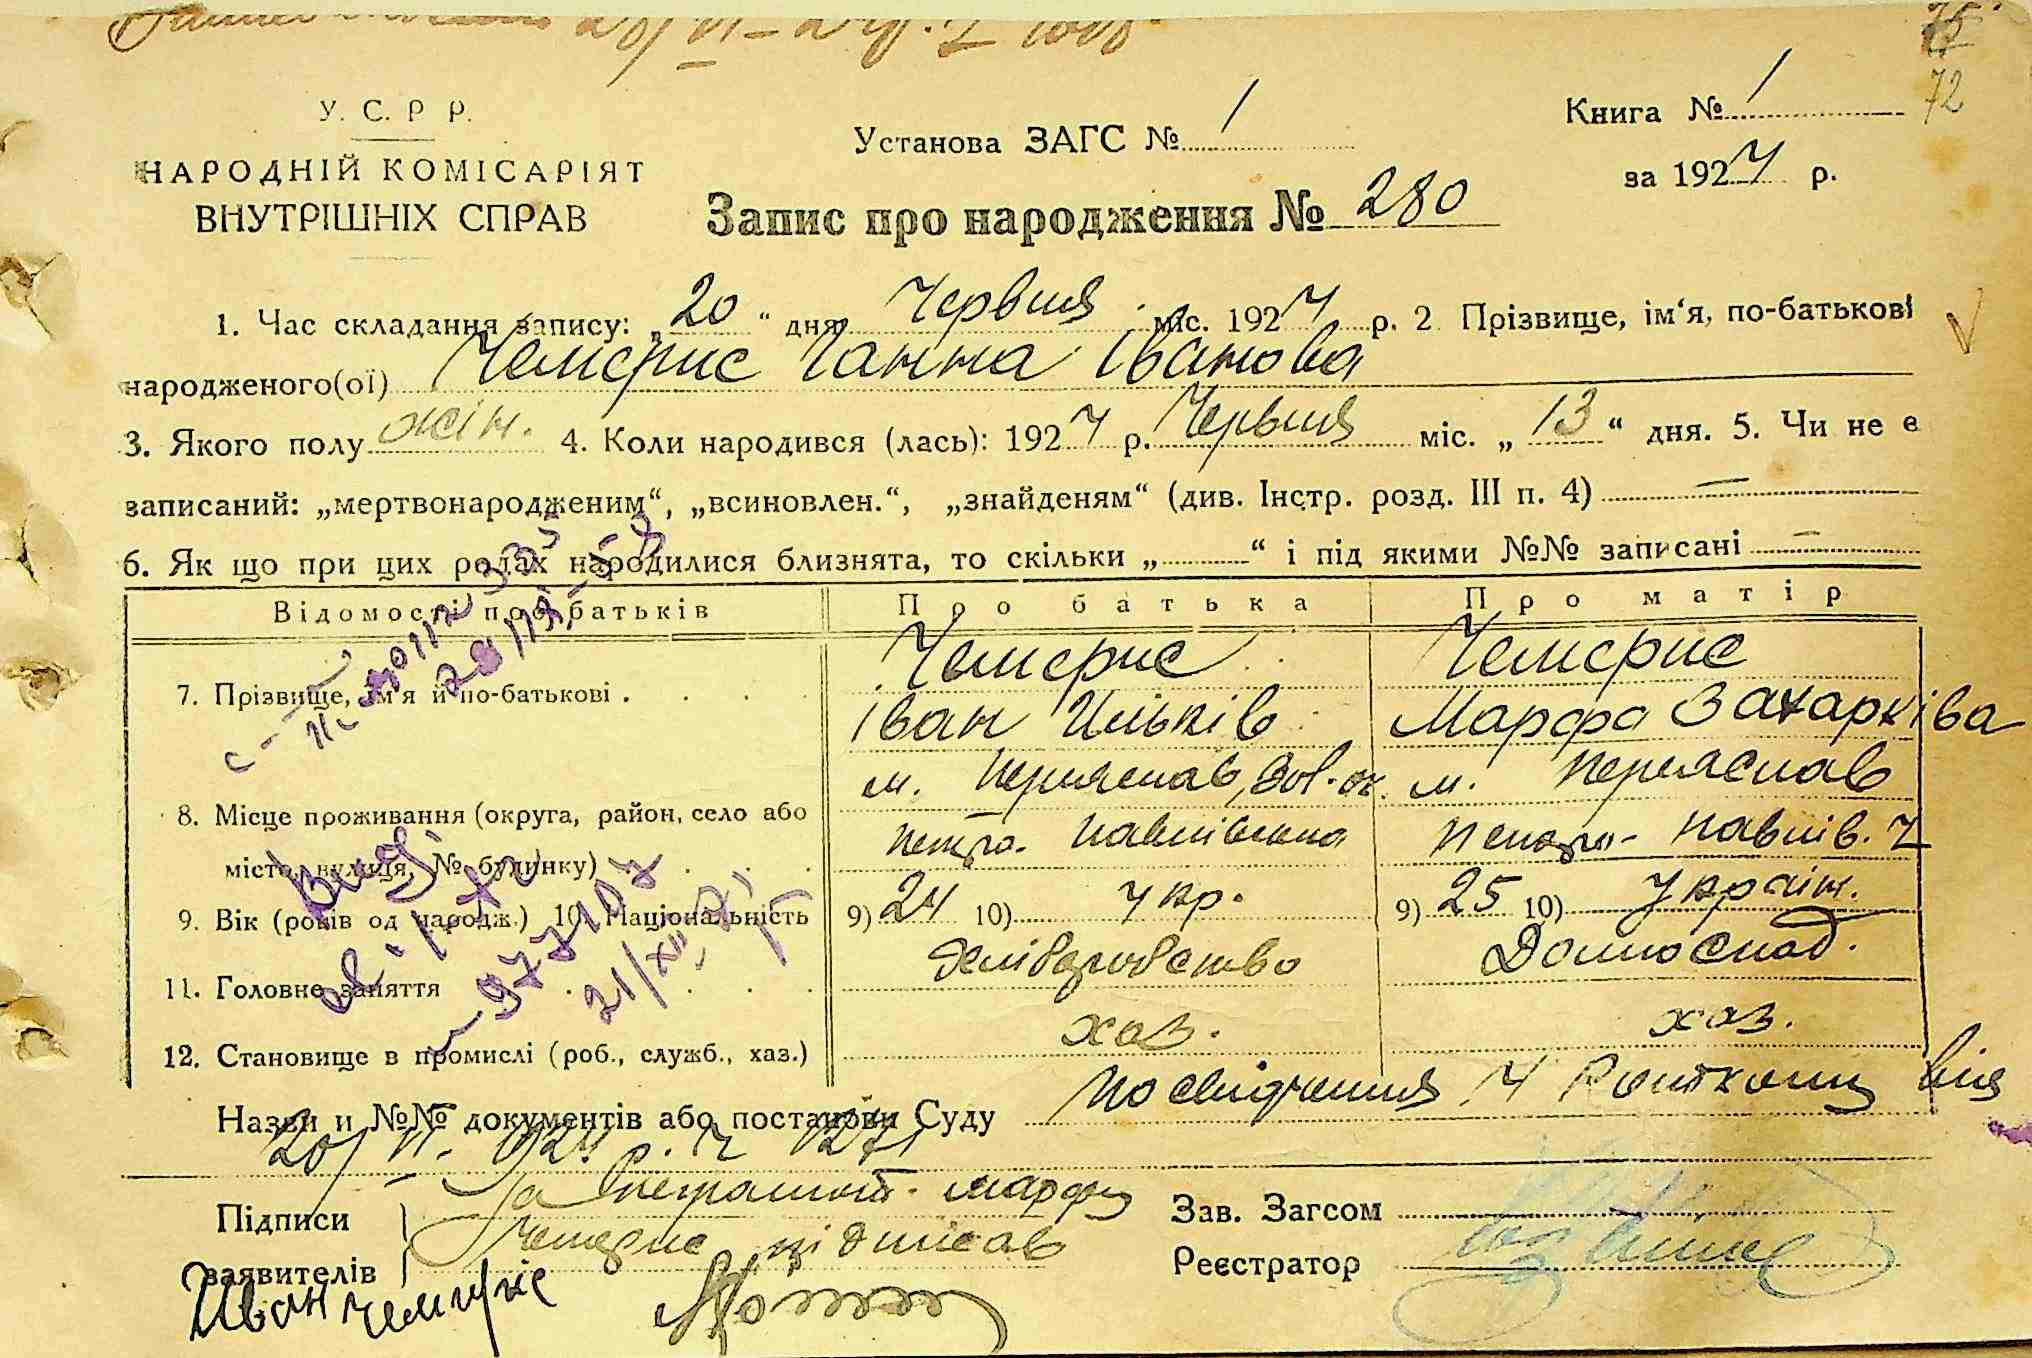 75
72
У. С. Р Р.
НАРОДНІЙ КОМІСАРІЯТ
ВНУТРІШНІХ СПРАВ
Установа ЗАГС № 1
Книга № 1
за 1924 р.
Запис про народження № 280
1. Час складання запису: „20“ дня Червня міс. 1924 р. 2 Прізвище, ім‘я, по-батькові
народженого(ої) Чемерис Ганна Іванова
3. Якого полу жін. 4. Коли народився (лась): 1924 р. Червня міс. „13“ дня. 5. Чи не є
записаний: „мертвонародженим“, „всиновлен.“, „знайденям“ (див. Інстр. розд. III п. 4) —
6. Як що при цих родах народилися близнята, то скільки „ “ і під якими №№ записані —
Відомості про батьків Про батька Про матір
7. Прізвище, ім‘я й по-батькові . Чемерис Чемерис
Іван Ильків Марфа Захарківа
8. Місце проживання (округа, район, село або м. Переяслав, м. Переяслав
місто, вулиця, № будинку) Петро-Павлівська Петро-Павлів.
9. Вік (років од народж.) 10. Національність 9) 24 10) Укр. 9) 25 10) Україн.
11. Головне заняття Хліборобство Домоспод.
12. Становище в промислі (роб., служб., хаз.) хаз. хаз.
Назви и №№ документів або постанови Суду Посвідчення від
20/VI. 924 р. ч
Підписи За неграмот. Марфу
заявителів Чемерис підписав
Иван Чемерис
Зав. Загсом
Реєстратор